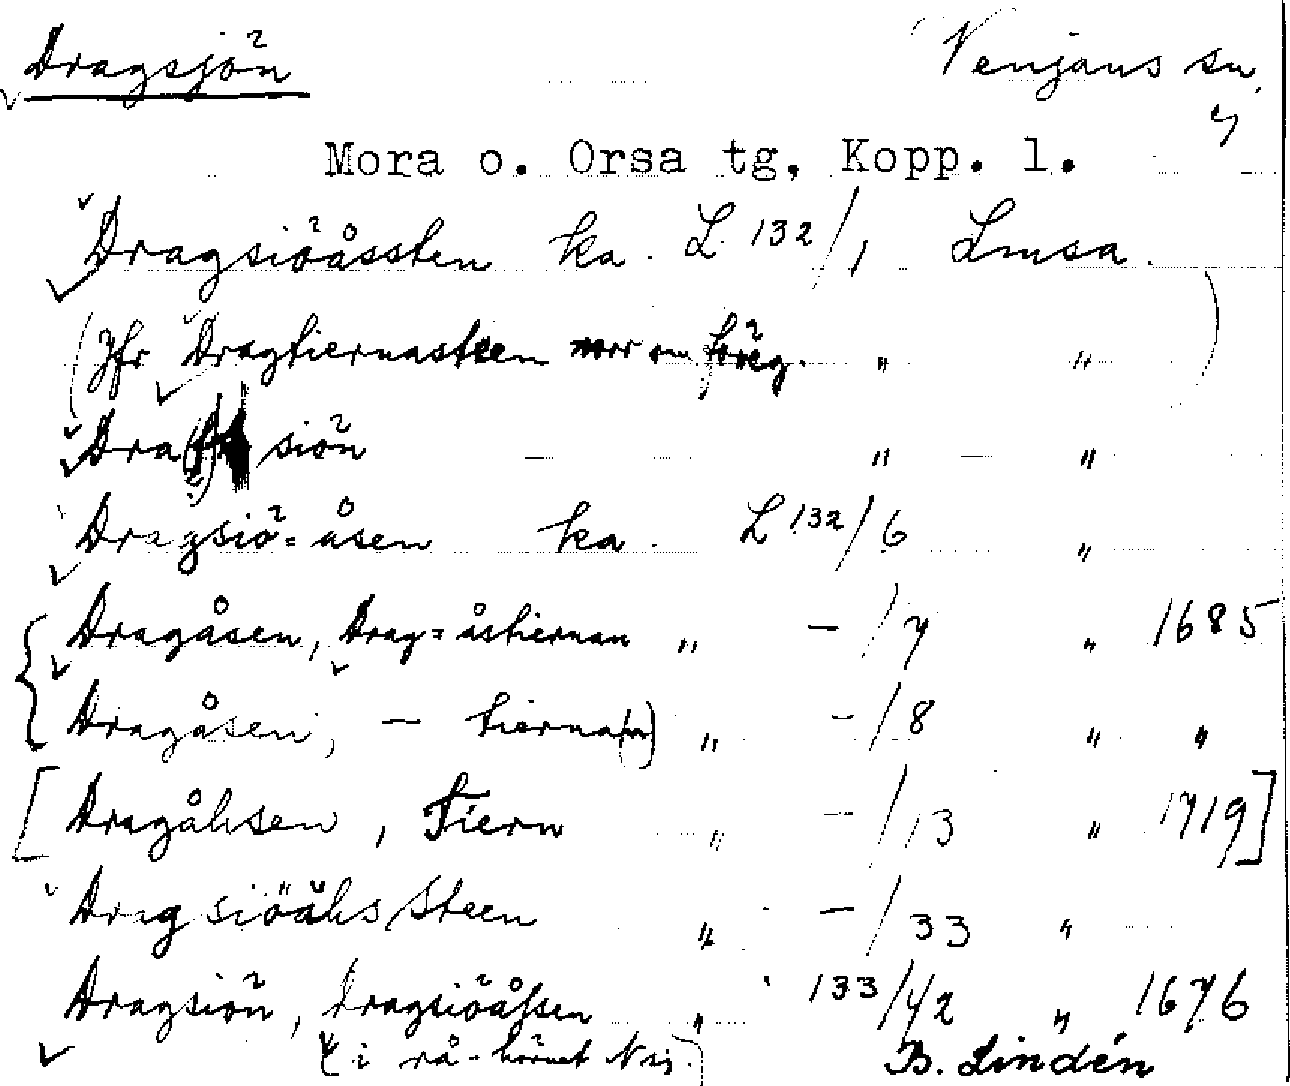 Dragsjön Venjans sn,
Mora o. Orsa tg, Kopp. l.
Dragsiöåssten ka. L 132/1 Lmsa.
(Jfr Dragtiernasteen " "
Dra siön — " — "
Dragsiö=åsen ka. L 132/6 "
{ Dragåsen, Drag=åstiernan " —/7 " 1685
Dragåsen, — tierna(n) " —/8 " "
[ Dragåhsen, Tiern " —/13 " 1719 ]
Dragsiöåhs Steen " —/33 "
Dragsiön, Dragsiöåssen " 133/42 " 1676
( i rå-hörnet N )
B. Lindén